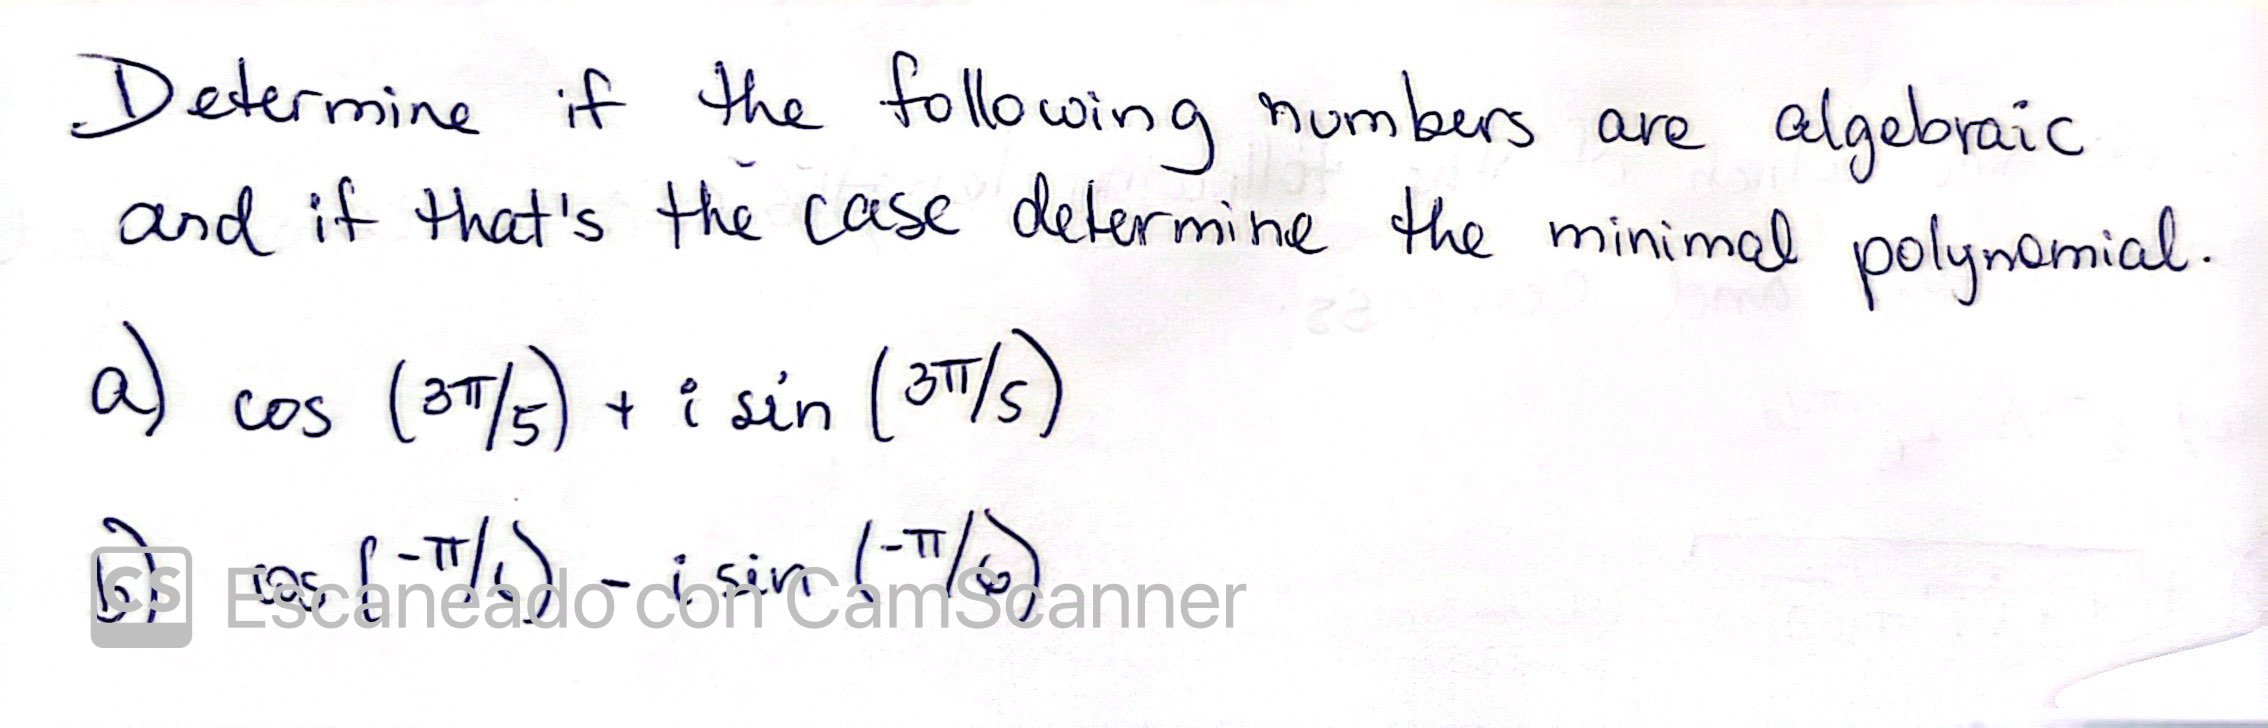 Determine if the following numbers are algebraic
and if that's the case determine the minimal polynomial.
a) cos (3π/5) + i sin (3π/5)
b) cos (-π/6) - i sin (-π/6)
CS Escaneado con CamScanner